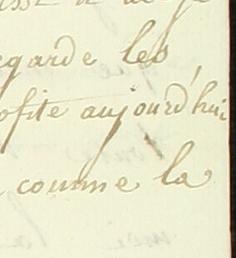 egarde les
ofite aujourd'hui
comme la